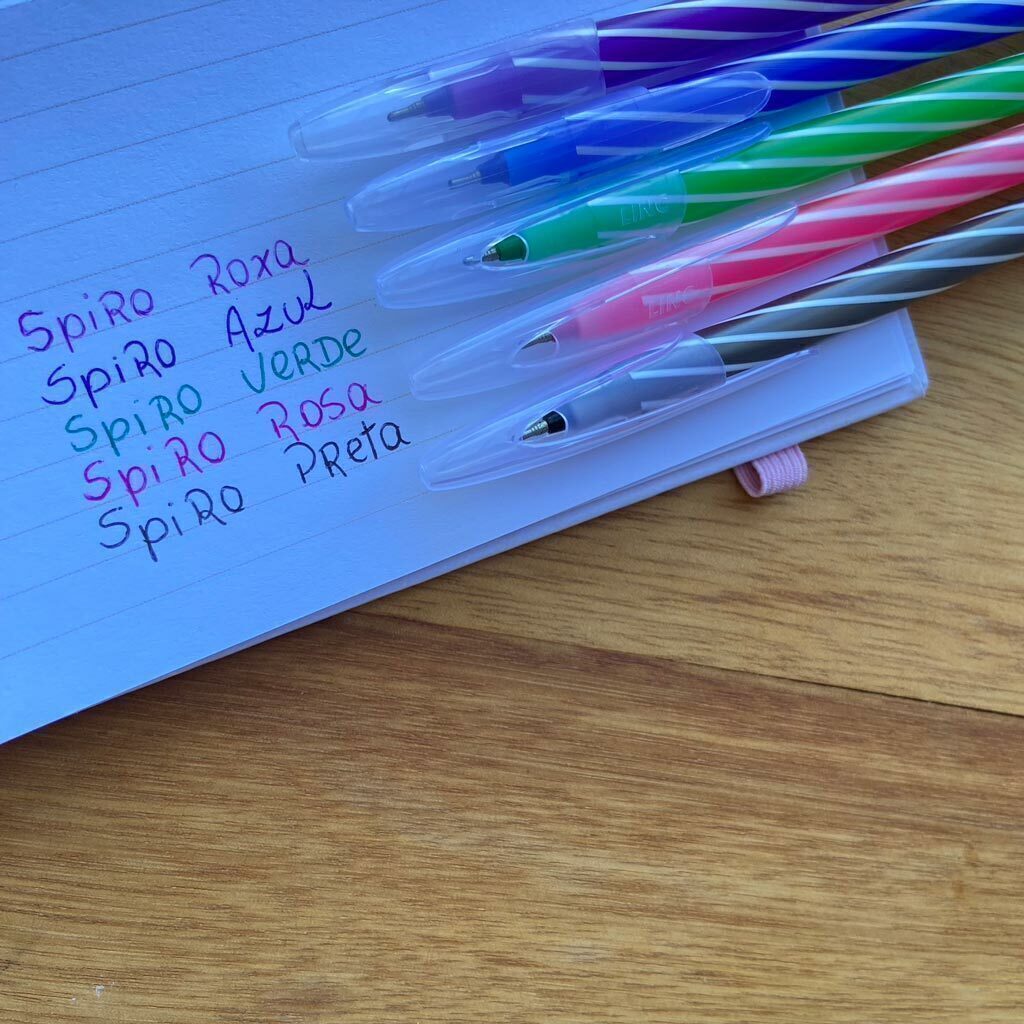 Spiro Roxa
Spiro Azul
Spiro Verde
Spiro Rosa
Spiro Preta
LINC
LINC